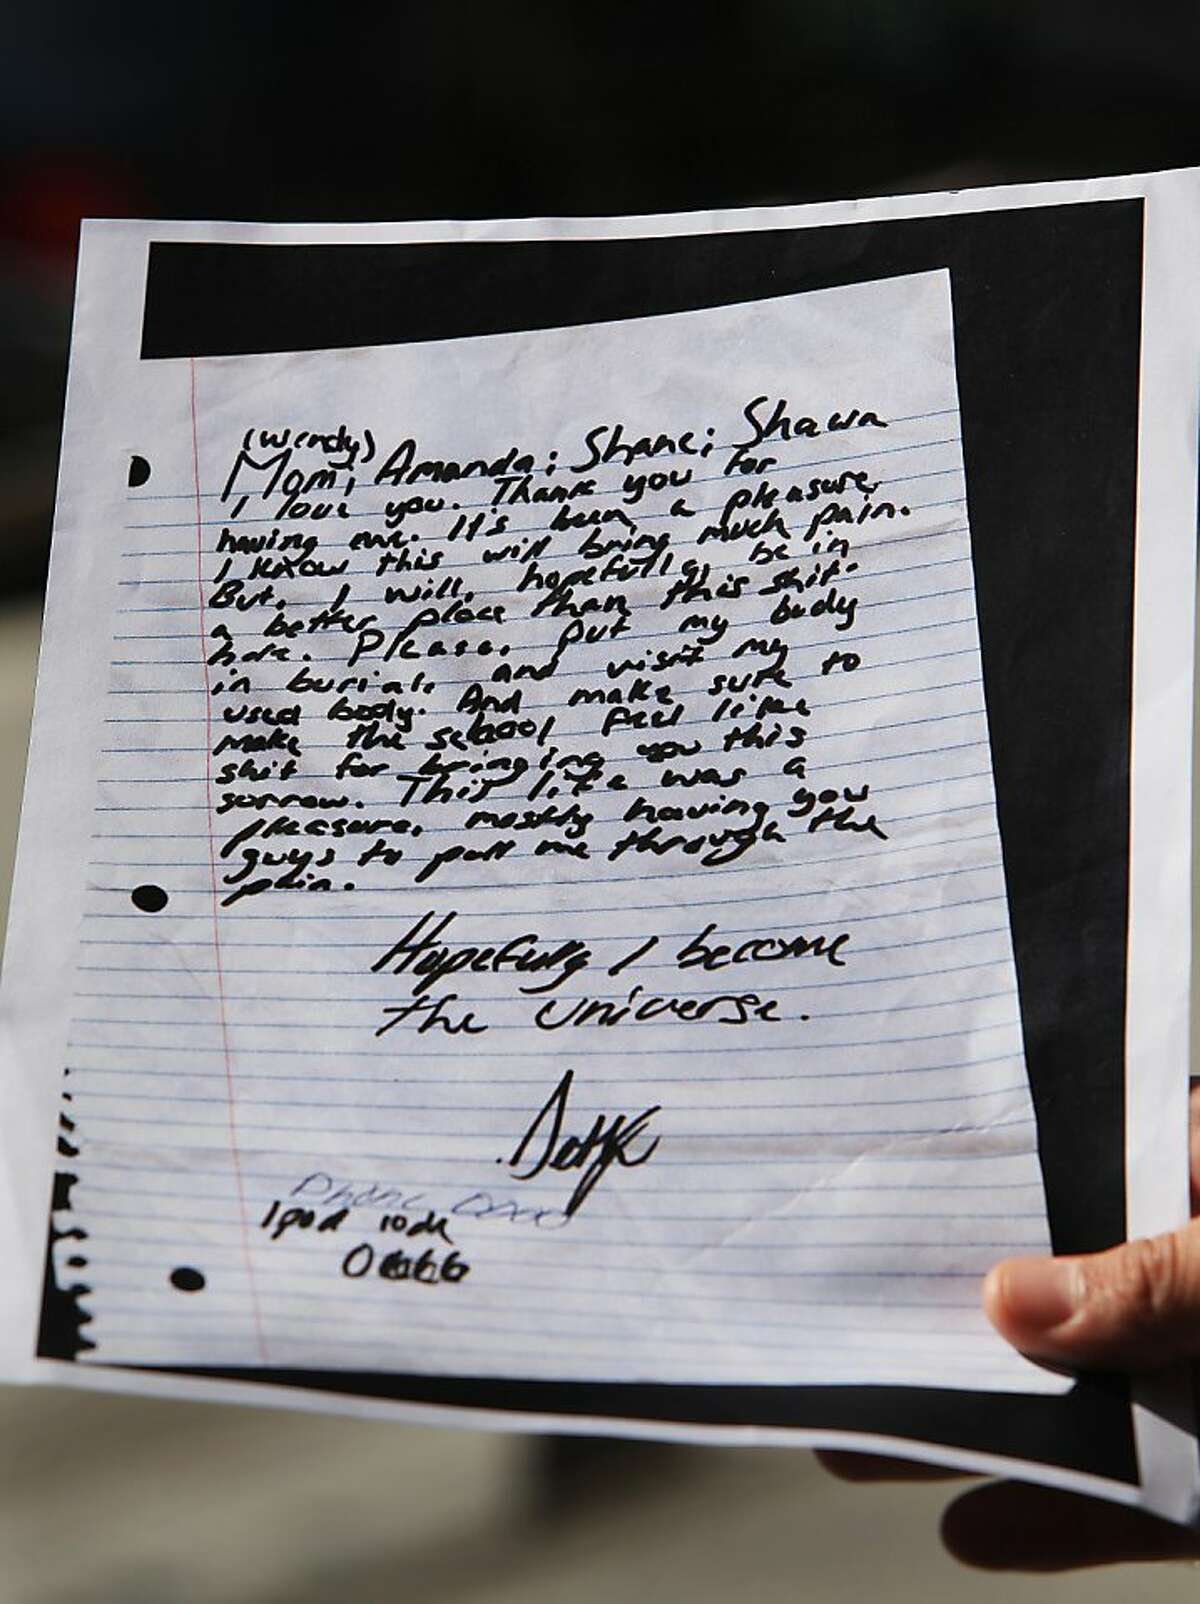 (Wendy)
Mom; Amanda; Shane; Shawn
I love you. Thank you for
having me. It's been a pleasure.
I know this will bring much pain.
But, I will, hopefully, be in
a better place than this shit-
hole. Please, put my body
in burial, and visit my
used body. And make sure to
make the school feel like
shit for bringing you this
sorrow. This life was a
pleasure, mostly having you
guys to pull me through the
pain.
Hopefully I become
the universe.
Ipod